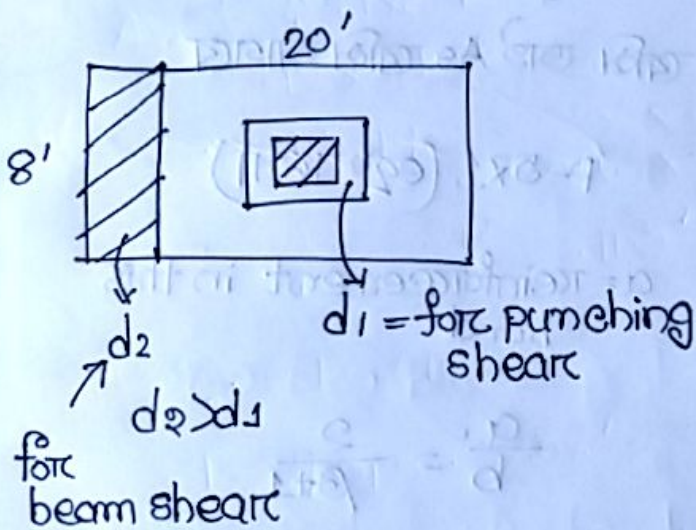 20'
8'
d2
d1 = for punching
shear
d2>d1
for
beam shear